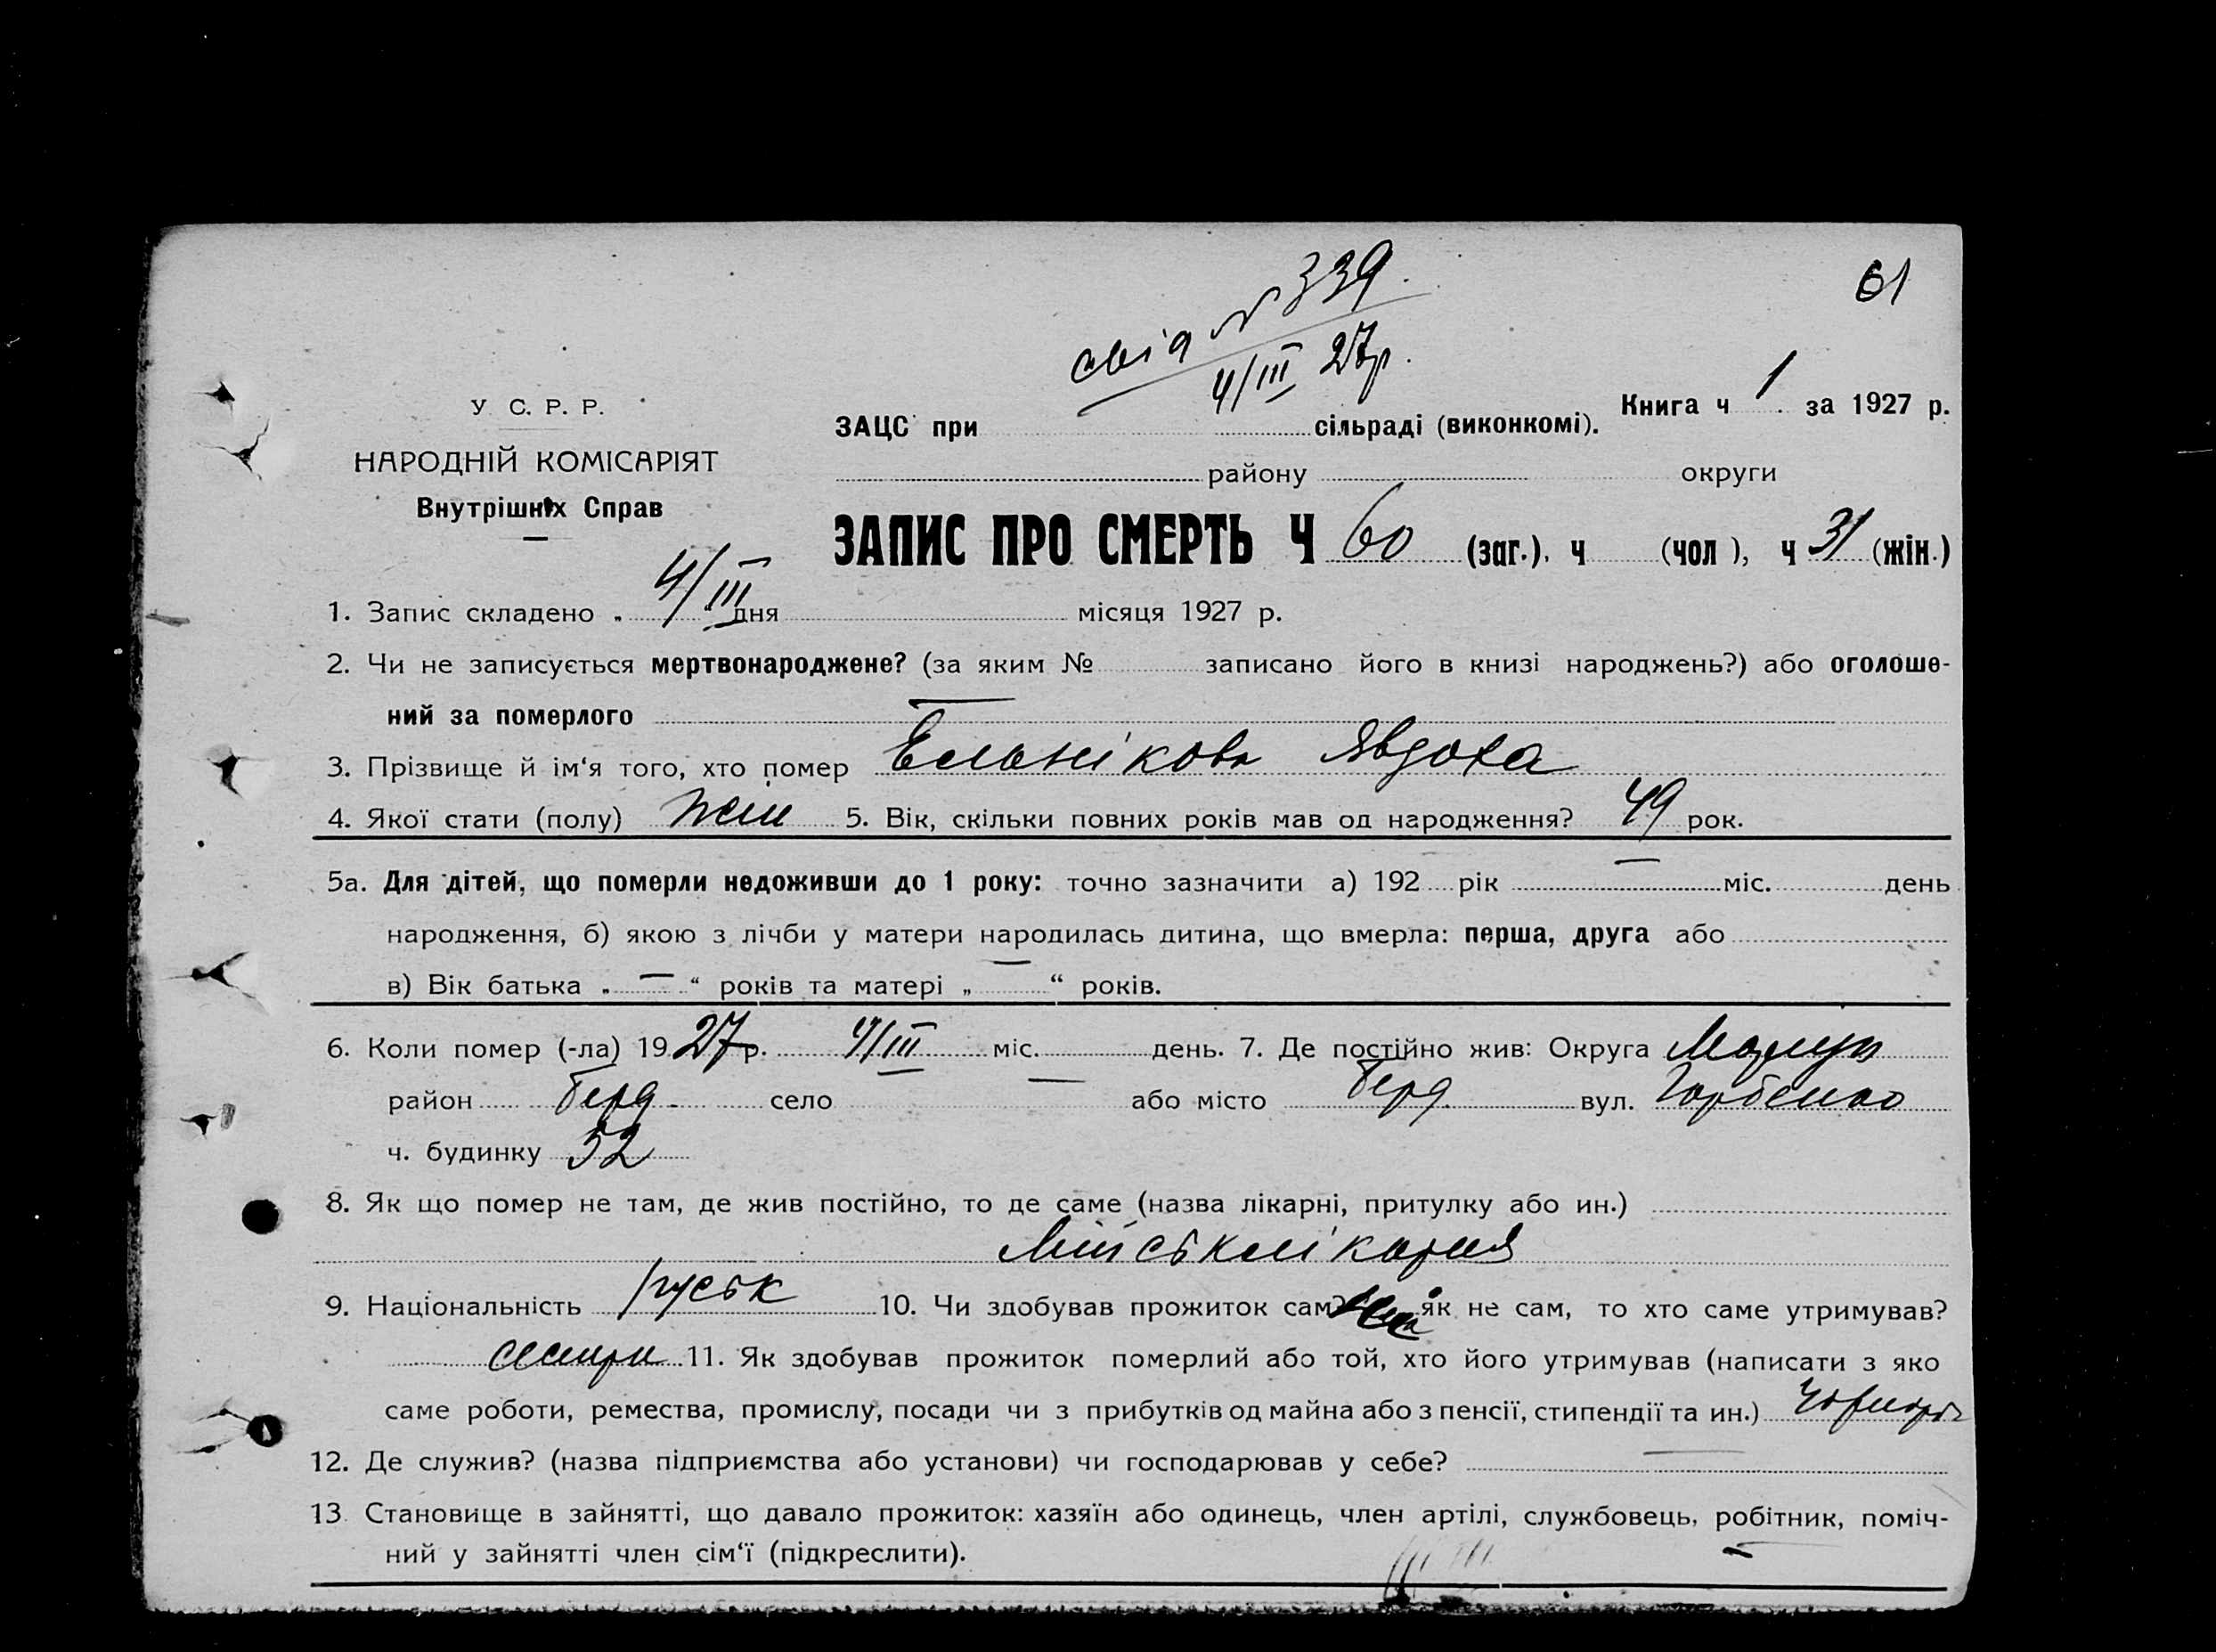 61
N 339.
4/III 27р.
У С. Р. Р.
НАРОДНІЙ КОМІСАРІЯТ
Внутрішніх Справ
Книга ч 1 за 1927 р.
ЗАЦС при сільраді (виконкомі).
району округи
ЗАПИС ПРО СМЕРТЬ Ч 60 (заг.), ч (чол), ч 31 (жін.)
1. Запис складено „ 4/III дня місяця 1927 р.
2. Чи не записується мертвонароджене? (за яким № записано його в книзі народжень?) або оголоше-
ний за померлого —
3. Прізвище й ім‘я того, хто помер Ельнікова Явдоха
4. Якої стати (полу) жін 5. Вік, скільки повних років мав од народження? 49 рок.
5а. Для дітей, що померли недоживши до 1 року: точно зазначити а) 192 рік — міс. день
народження, б) якою з лічби у матери народилась дитина, що вмерла: перша, друга або
в) Вік батька „ — “ років та матері „ — “ років.
6. Коли помер (-ла) 19 27 р. 4/III міс. день. 7. Де постійно жив: Округа Маріуп
район Берд. село — або місто Берд. вул. Горбенко
ч. будинку 52
8. Як що помер не там, де жив постійно, то де саме (назва лікарні, притулку або ин.)
Міськлікарня
9. Національність руськ 10. Чи здобував прожиток сам? як не сам, то хто саме утримував?
11. Як здобував прожиток померлий або той, хто його утримував (написати з яко
саме роботи, ремества, промислу, посади чи з прибутків од майна або з пенсії, стипендії та ин.) Чорнороб
12. Де служив? (назва підприємства або установи) чи господарював у себе? —
13. Становище в зайнятті, що давало прожиток: хазяїн або одинець, член артілі, службовець, робітник, поміч-
ний у зайнятті член сім‘ї (підкреслити).